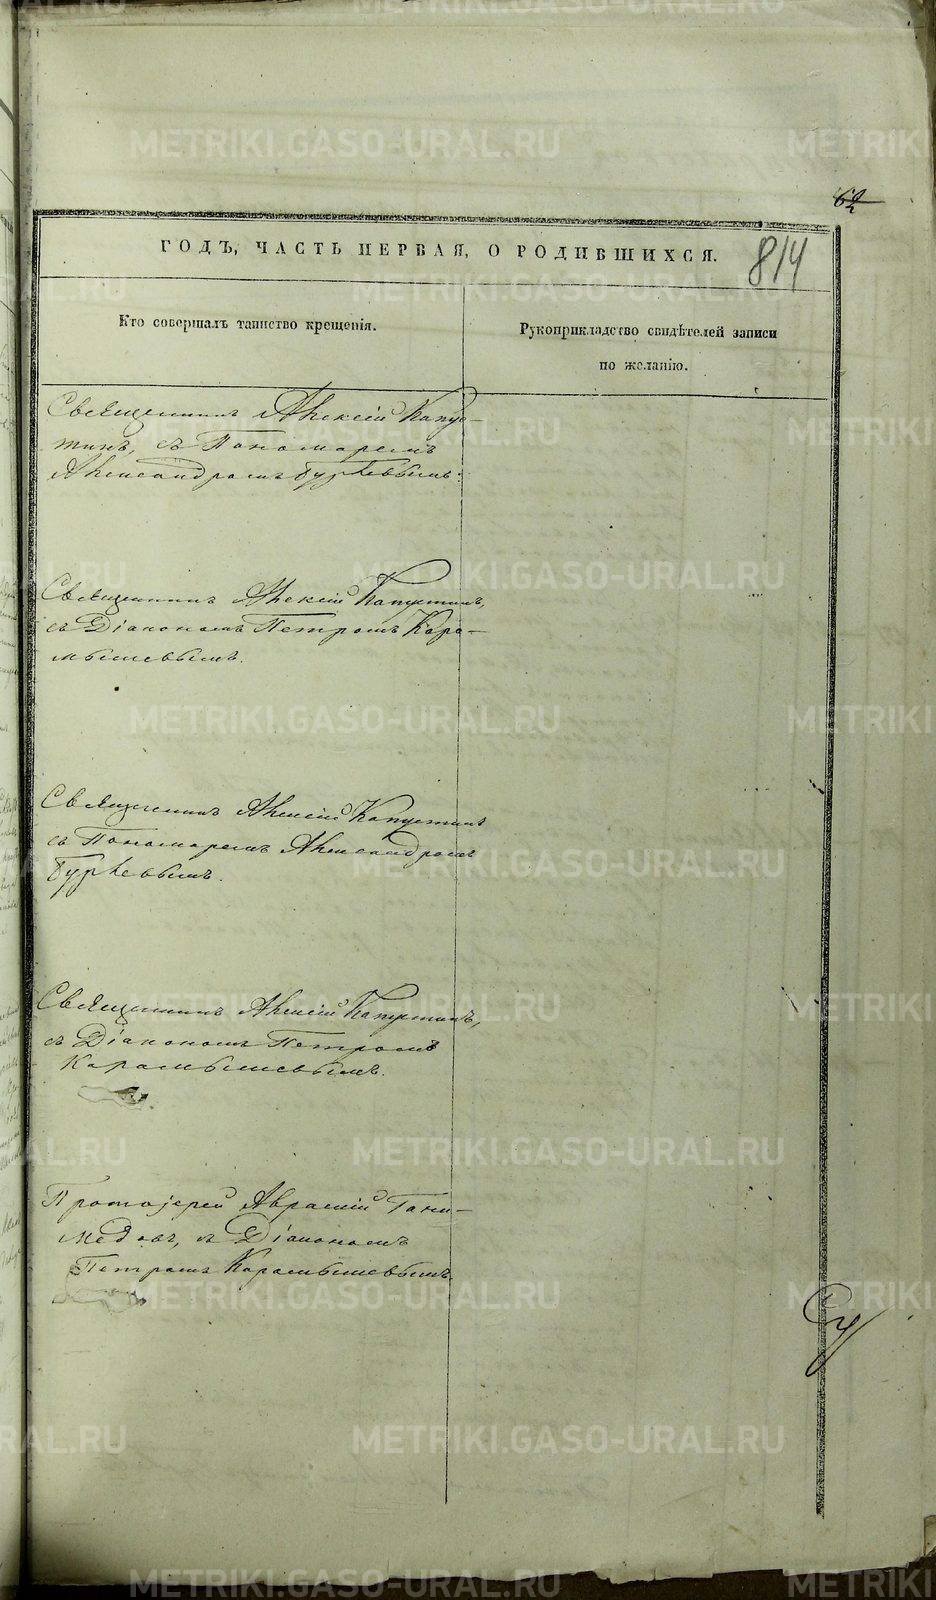 814
ГОДЪ, ЧАСТЬ ПЕРВАЯ, О РОДИВШИХСЯ.
Кто совершалъ таинство крещенія.
Рукоприкладство свидѣтелей записи
по желанію.
Священникъ Алексій Капус-
тинъ, съ Пономаремъ
Александромъ
Священникъ Алексій Капустинъ,
съ Діакономъ Петромъ Кара-
мышевымъ.
Священникъ Алексій Капустинъ
съ Пономаремъ Александромъ
Священникъ Алексій Капустинъ,
съ Діакономъ Петромъ
Карамышевымъ.
Протоіерей Авраамій Гани-
медовъ, съ Діакономъ
Петромъ Карамышевымъ.
METRIKI.GASO-URAL.RU